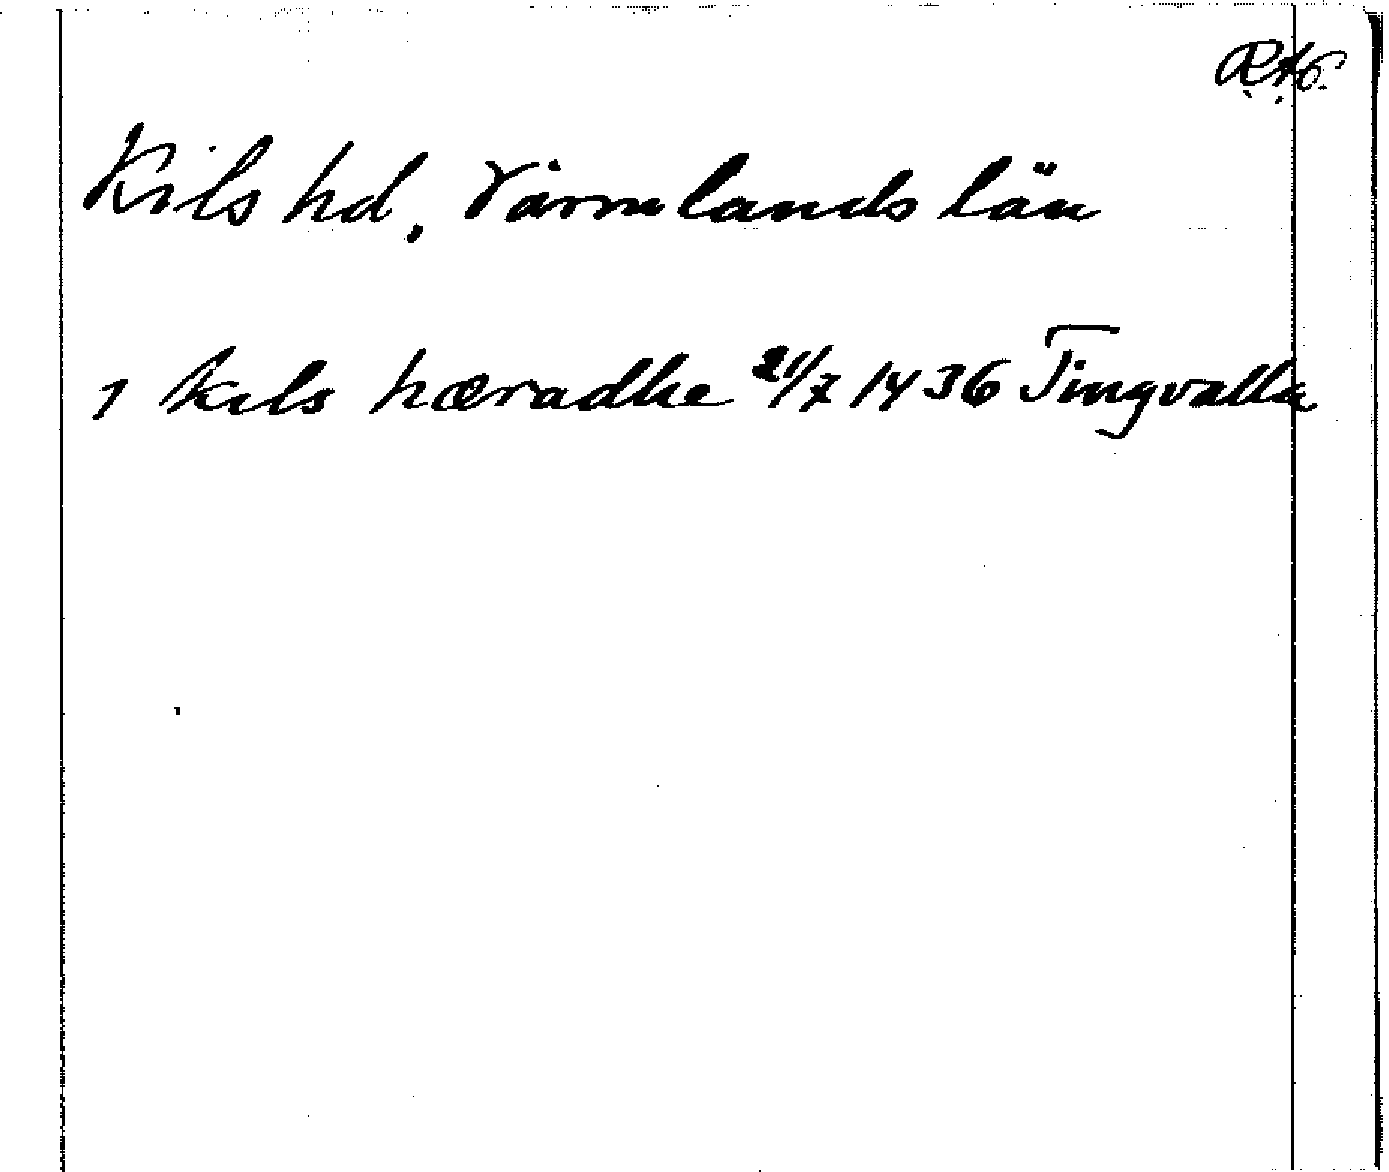 R.A.6.
Kils hd, Värmlands län
1 kils hæradhe 21/7 1436 Tingvalla